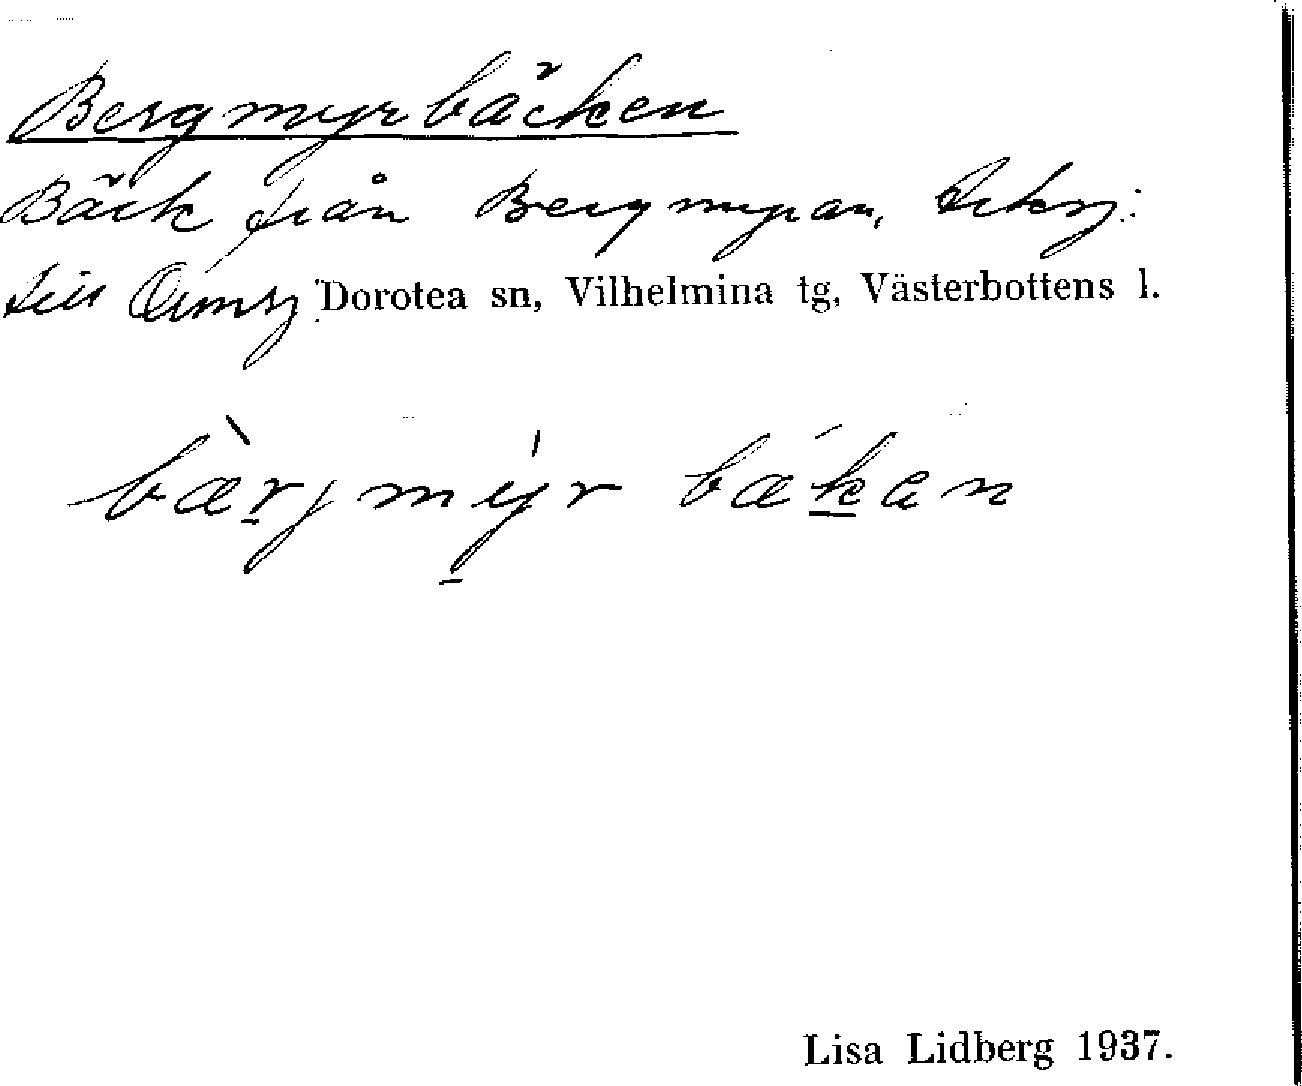 Bergmyrbäcken
Bäck från Bergmyran,
till Dorotea sn, Vilhelmina tg, Västerbottens l.
bærjmyr bækan
Lisa Lidberg 1937.